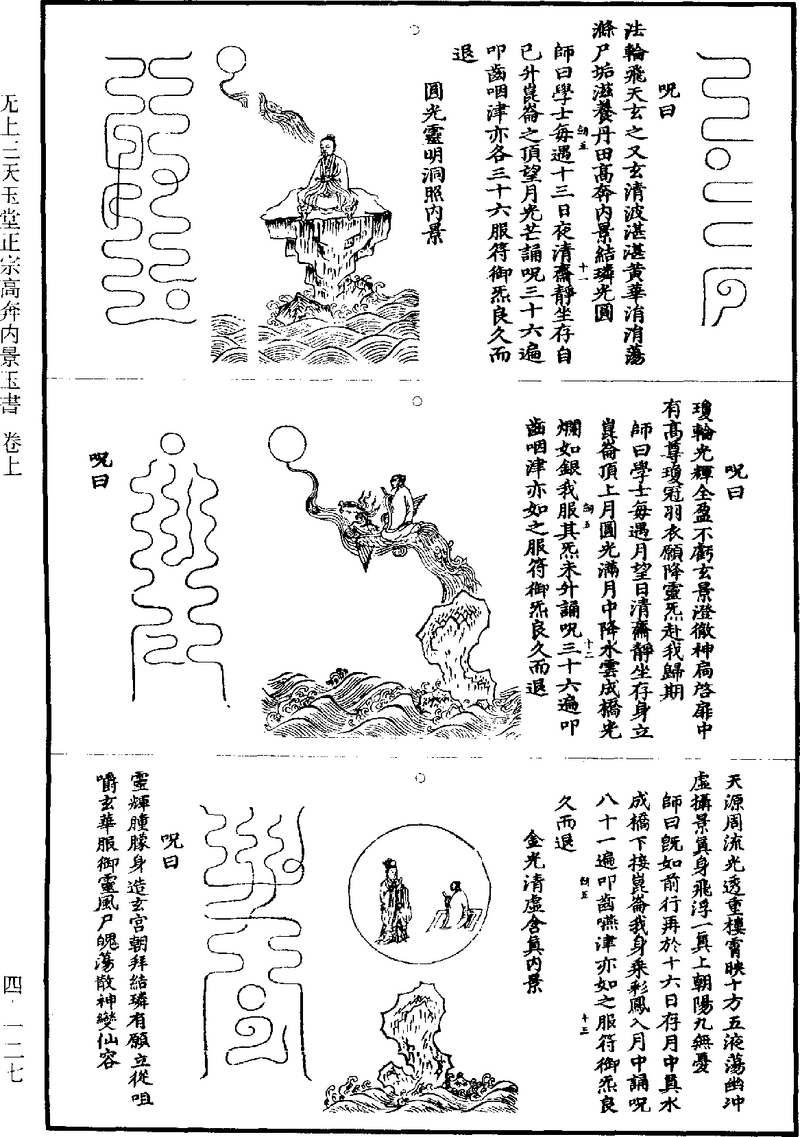 咒曰
法輪飛天玄之又玄清波湛湛黃華涓涓蕩
滌尸垢滋養丹田高奔內景結璘光圓
師曰學士每遇十三日夜清齋靜坐存自
已升崑崙之頂望月光芒誦咒三十六遍
叩齒咽津亦各三十六服符御炁良久而
退
圓光靈明洞照內景
十一
咒曰
瓊輪光輝全盈不虧玄景澄徹神扃啓扉中
有高尊瓊冠羽衣願降靈炁赴我歸期
師曰學士每遇月望日清齋靜坐存身立
崑崙頂上月圓光滿月中降水雲成橋光
爛如銀我服其炁未升誦咒三十六遍叩
齒咽津亦如之服符御炁良久而退
十二
咒曰
天源周流光透重樓霄映十方五液蕩幽冲
虛攝景真身飛浮一真上朝陽九無憂
師曰旣如前行再於十六日存月中真水
成橋下接崑崙我身乘彩鳳入月中誦咒
八十一遍叩齒嚥津亦如之服符御炁良
久而退
金光清虛含真內景
十三
咒曰
靈輝朣朦身造玄宮朝拜結璘有願立從咀
嚼玄華服御靈風尸魄蕩散神變仙容
无上三天玉堂正宗高奔内景玉書 卷上
四·一二七